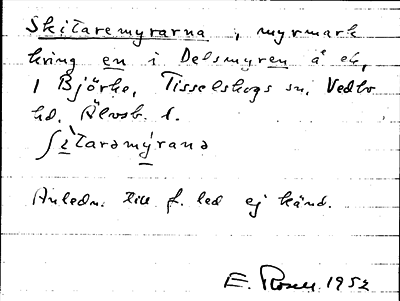 Skitaremyrarna, myrmark
kring en i Delsmyren å ek,
1 Björke, Tisselskogs sn, Vedbo
hd. Älvsb. l.
ʃìtarəmýrana
Anledn. till f. led ej känd.
E. Rosell 1952